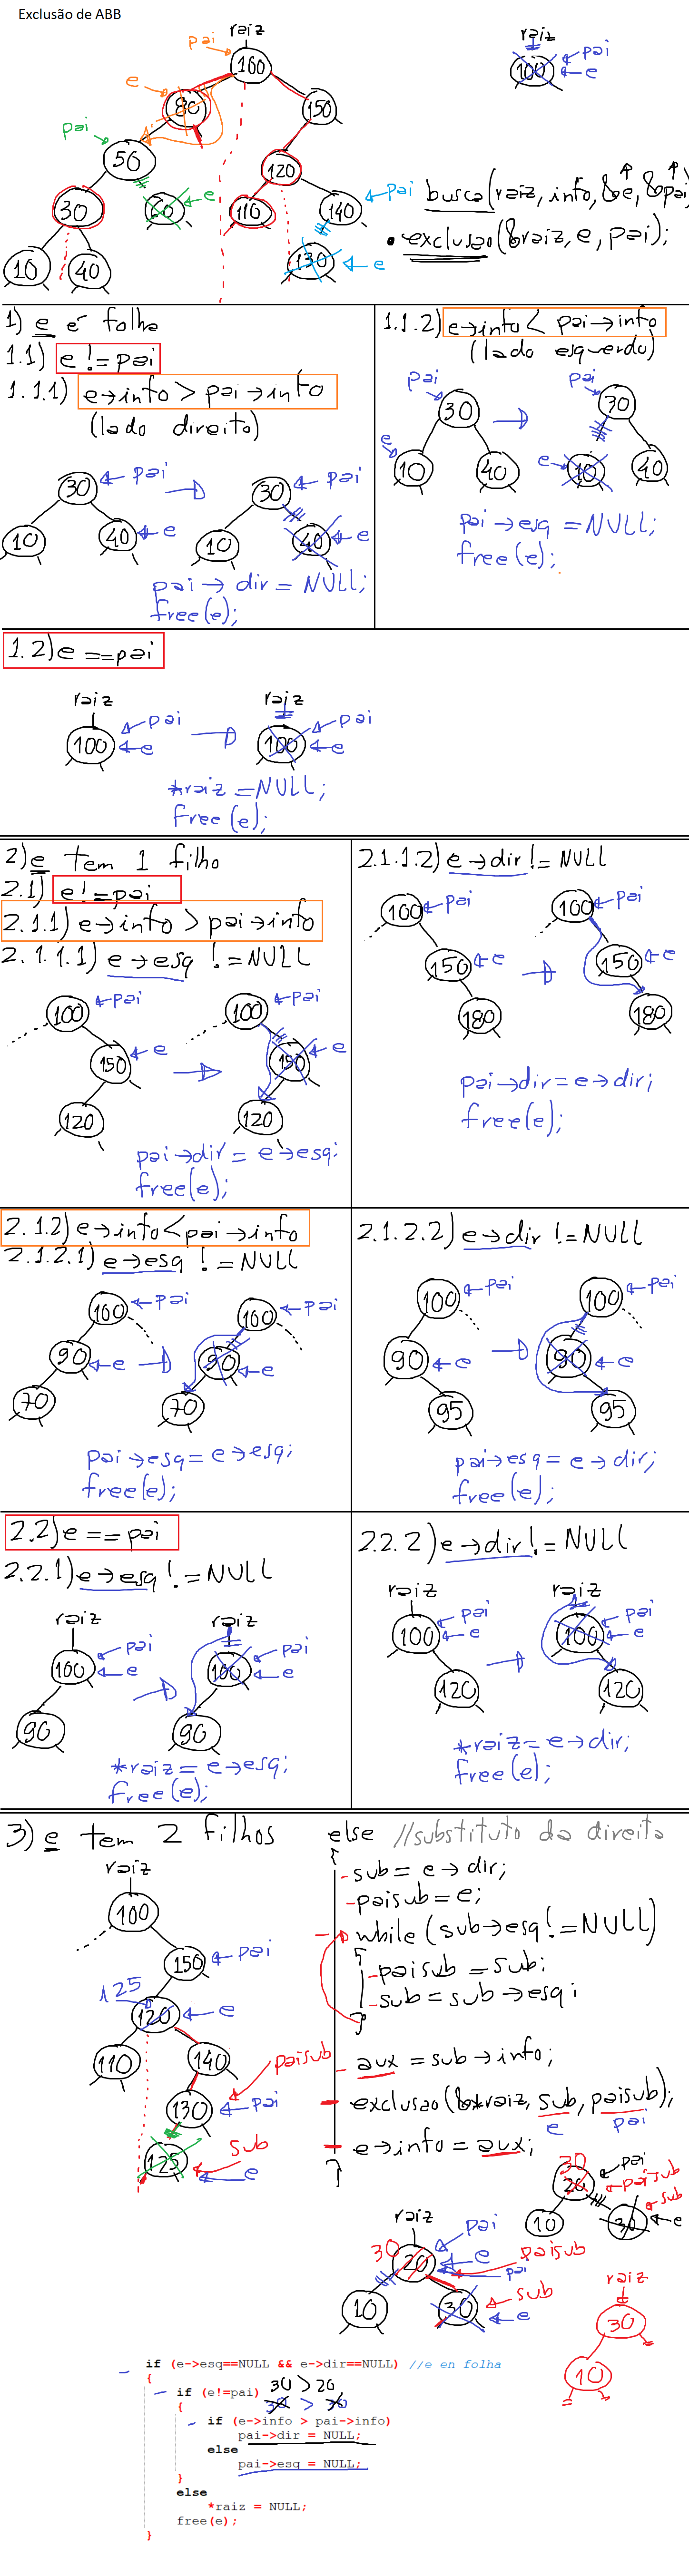 Exclusão de ABB
raiz
pai
100
e
80
150
pai
50
120
30
60
e
110
140
pai
10
40
130
e
raiz
100
pai
e
busca(raiz, info, &e, &pai)
• exclusao(&raiz, e, pai);
1) e é folha
1.1) e != pai
1.1.1) e→info > pai→info
(lado direito)
30
pai
10
40
e
30
pai
10
40
e
pai→dir = NULL;
free(e);
1.1.2) e→info < pai→info
(lado esquerdo)
pai
30
e
10
40
pai
30
e
10
40
pai→esq = NULL;
free(e);
1.2) e == pai
raiz
100
pai
e
raiz
100
pai
e
*raiz = NULL;
free(e);
2) e tem 1 filho
2.1) e != pai
2.1.1) e→info > pai→info
2.1.1.1) e→esq != NULL
100
pai
150
e
120
100
pai
150
e
120
pai→dir = e→esq;
free(e);
2.1.1.2) e→dir != NULL
100
pai
150
e
180
100
pai
150
e
180
pai→dir = e→dir;
free(e);
2.1.2) e→info < pai→info
2.1.2.1) e→esq != NULL
100
pai
90
e
70
100
pai
90
e
70
pai→esq = e→esq;
free(e);
2.1.2.2) e→dir != NULL
100
pai
90
e
95
100
pai
90
e
95
pai→esq = e→dir;
free(e);
2.2) e == pai
2.2.1) e→esq != NULL
raiz
100
pai
e
90
raiz
100
pai
e
90
*raiz = e→esq;
free(e);
2.2.2) e→dir != NULL
raiz
100
pai
e
120
raiz
100
pai
e
120
*raiz = e→dir;
free(e);
3) e tem 2 filhos
raiz
100
150
pai
125
120
e
110
140
paisub
130
pai
125
sub
e
else //substituto da direita
{
sub = e→dir;
paisub = e;
while (sub→esq != NULL)
{
paisub = sub;
sub = sub→esq;
}
aux = sub→info;
exclusao(&*raiz, sub, paisub);
e pai
e→info = aux;
}
30
20
pai
paisub
10
30
sub
e
raiz
30
20
pai
e
pai
paisub
10
30
sub
e
raiz
30
10
if (e->esq==NULL && e->dir==NULL) //e en folha
{
30 > 20
if (e!=pai) 30 > 30
{
if (e->info > pai->info)
pai->dir = NULL;
else
pai->esq = NULL;
}
else
*raiz = NULL;
free(e);
}